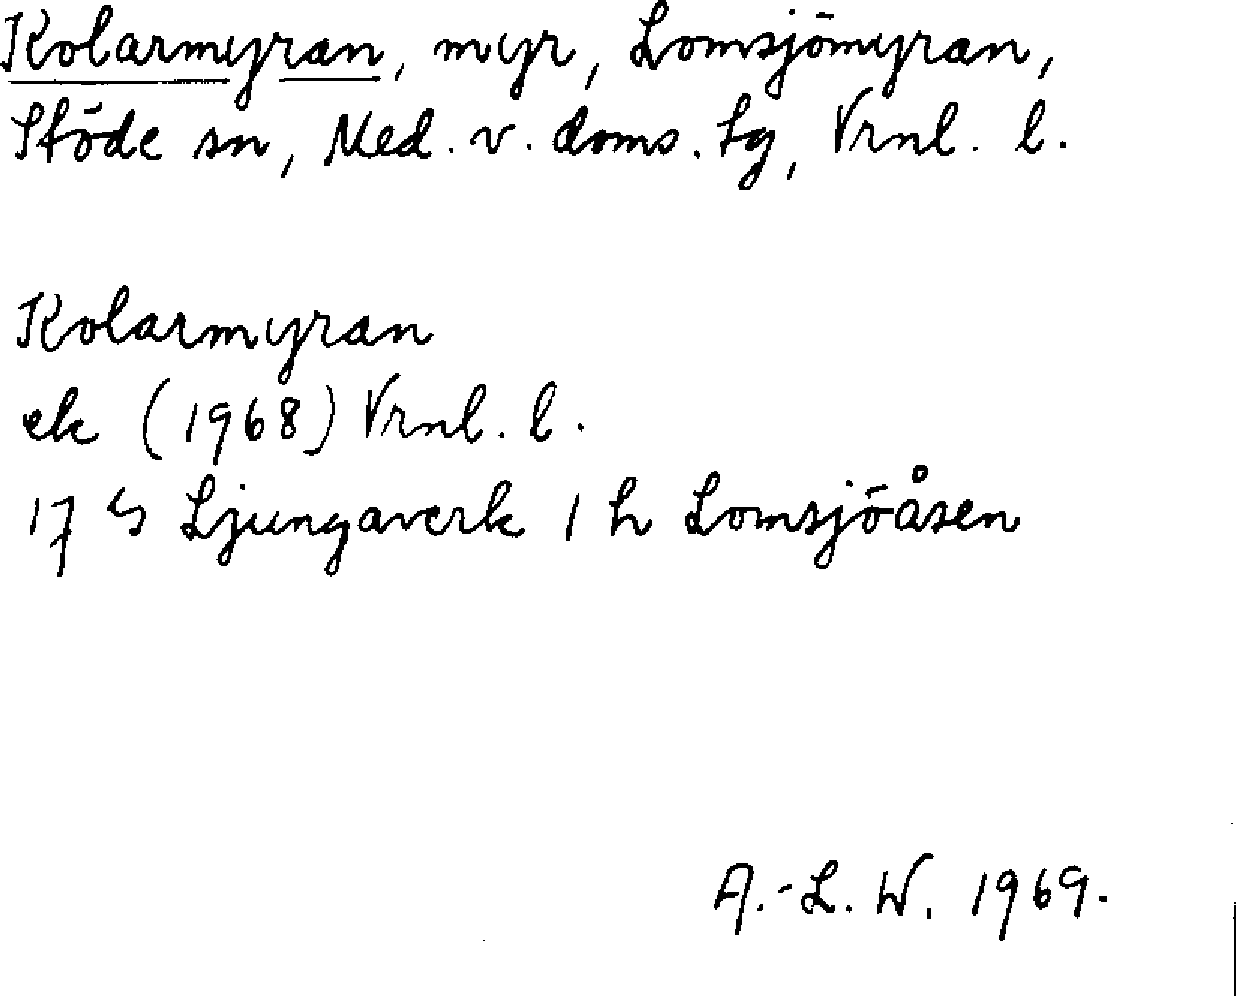 Kolarmyran, myr, Lomsjömyran,
Stöde sn, Med. v. doms. tg, Vrnl. l.
Kolarmyran
ek (1968) Vrnl. l.
17 S Ljungaverk 1 h Lomsjöåsen
A.-L. W. 1969.